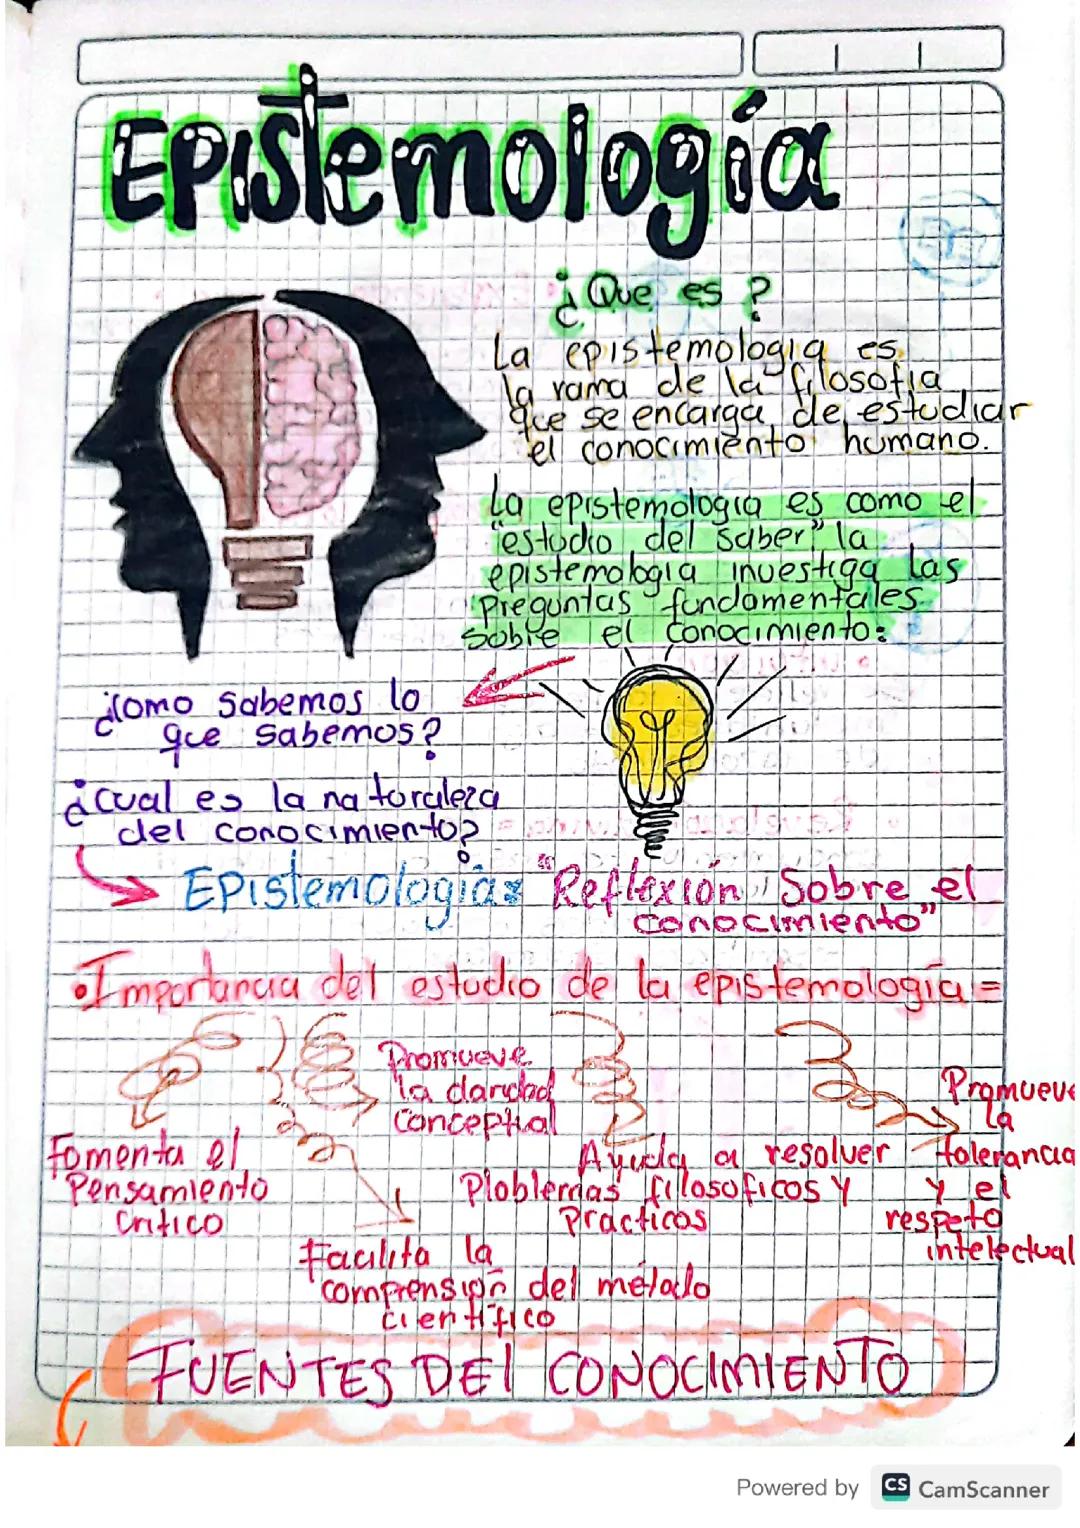 Epistemología
¿Que es?
La epistemologia es
la rama de la filosofia
que se encarga de estudiar
el conocimiento humano.
La epistemologia es como el
"estudio del saber" la
epistemologia investiga las
preguntas fundamentales
sobre el conocimiento:
¿Como sabemos lo
que sabemos?
¿Cual es la naturaleza
del conocimiento?
Epistemología: "Reflexión Sobre el
conocimiento"
• Importancia del estudio de la epistemología =
Fomenta el
Pensamiento
Critico
Promueve
la claridad
conceptual
Facilita la
comprensión del método
científico
Ayuda a resolver
Ploblemas filosoficos y
Practicos
Promueve
la
tolerancia
y el
respeto
intelectual
FUENTES DEl CONOCIMIENTO
Powered by CS CamScanner